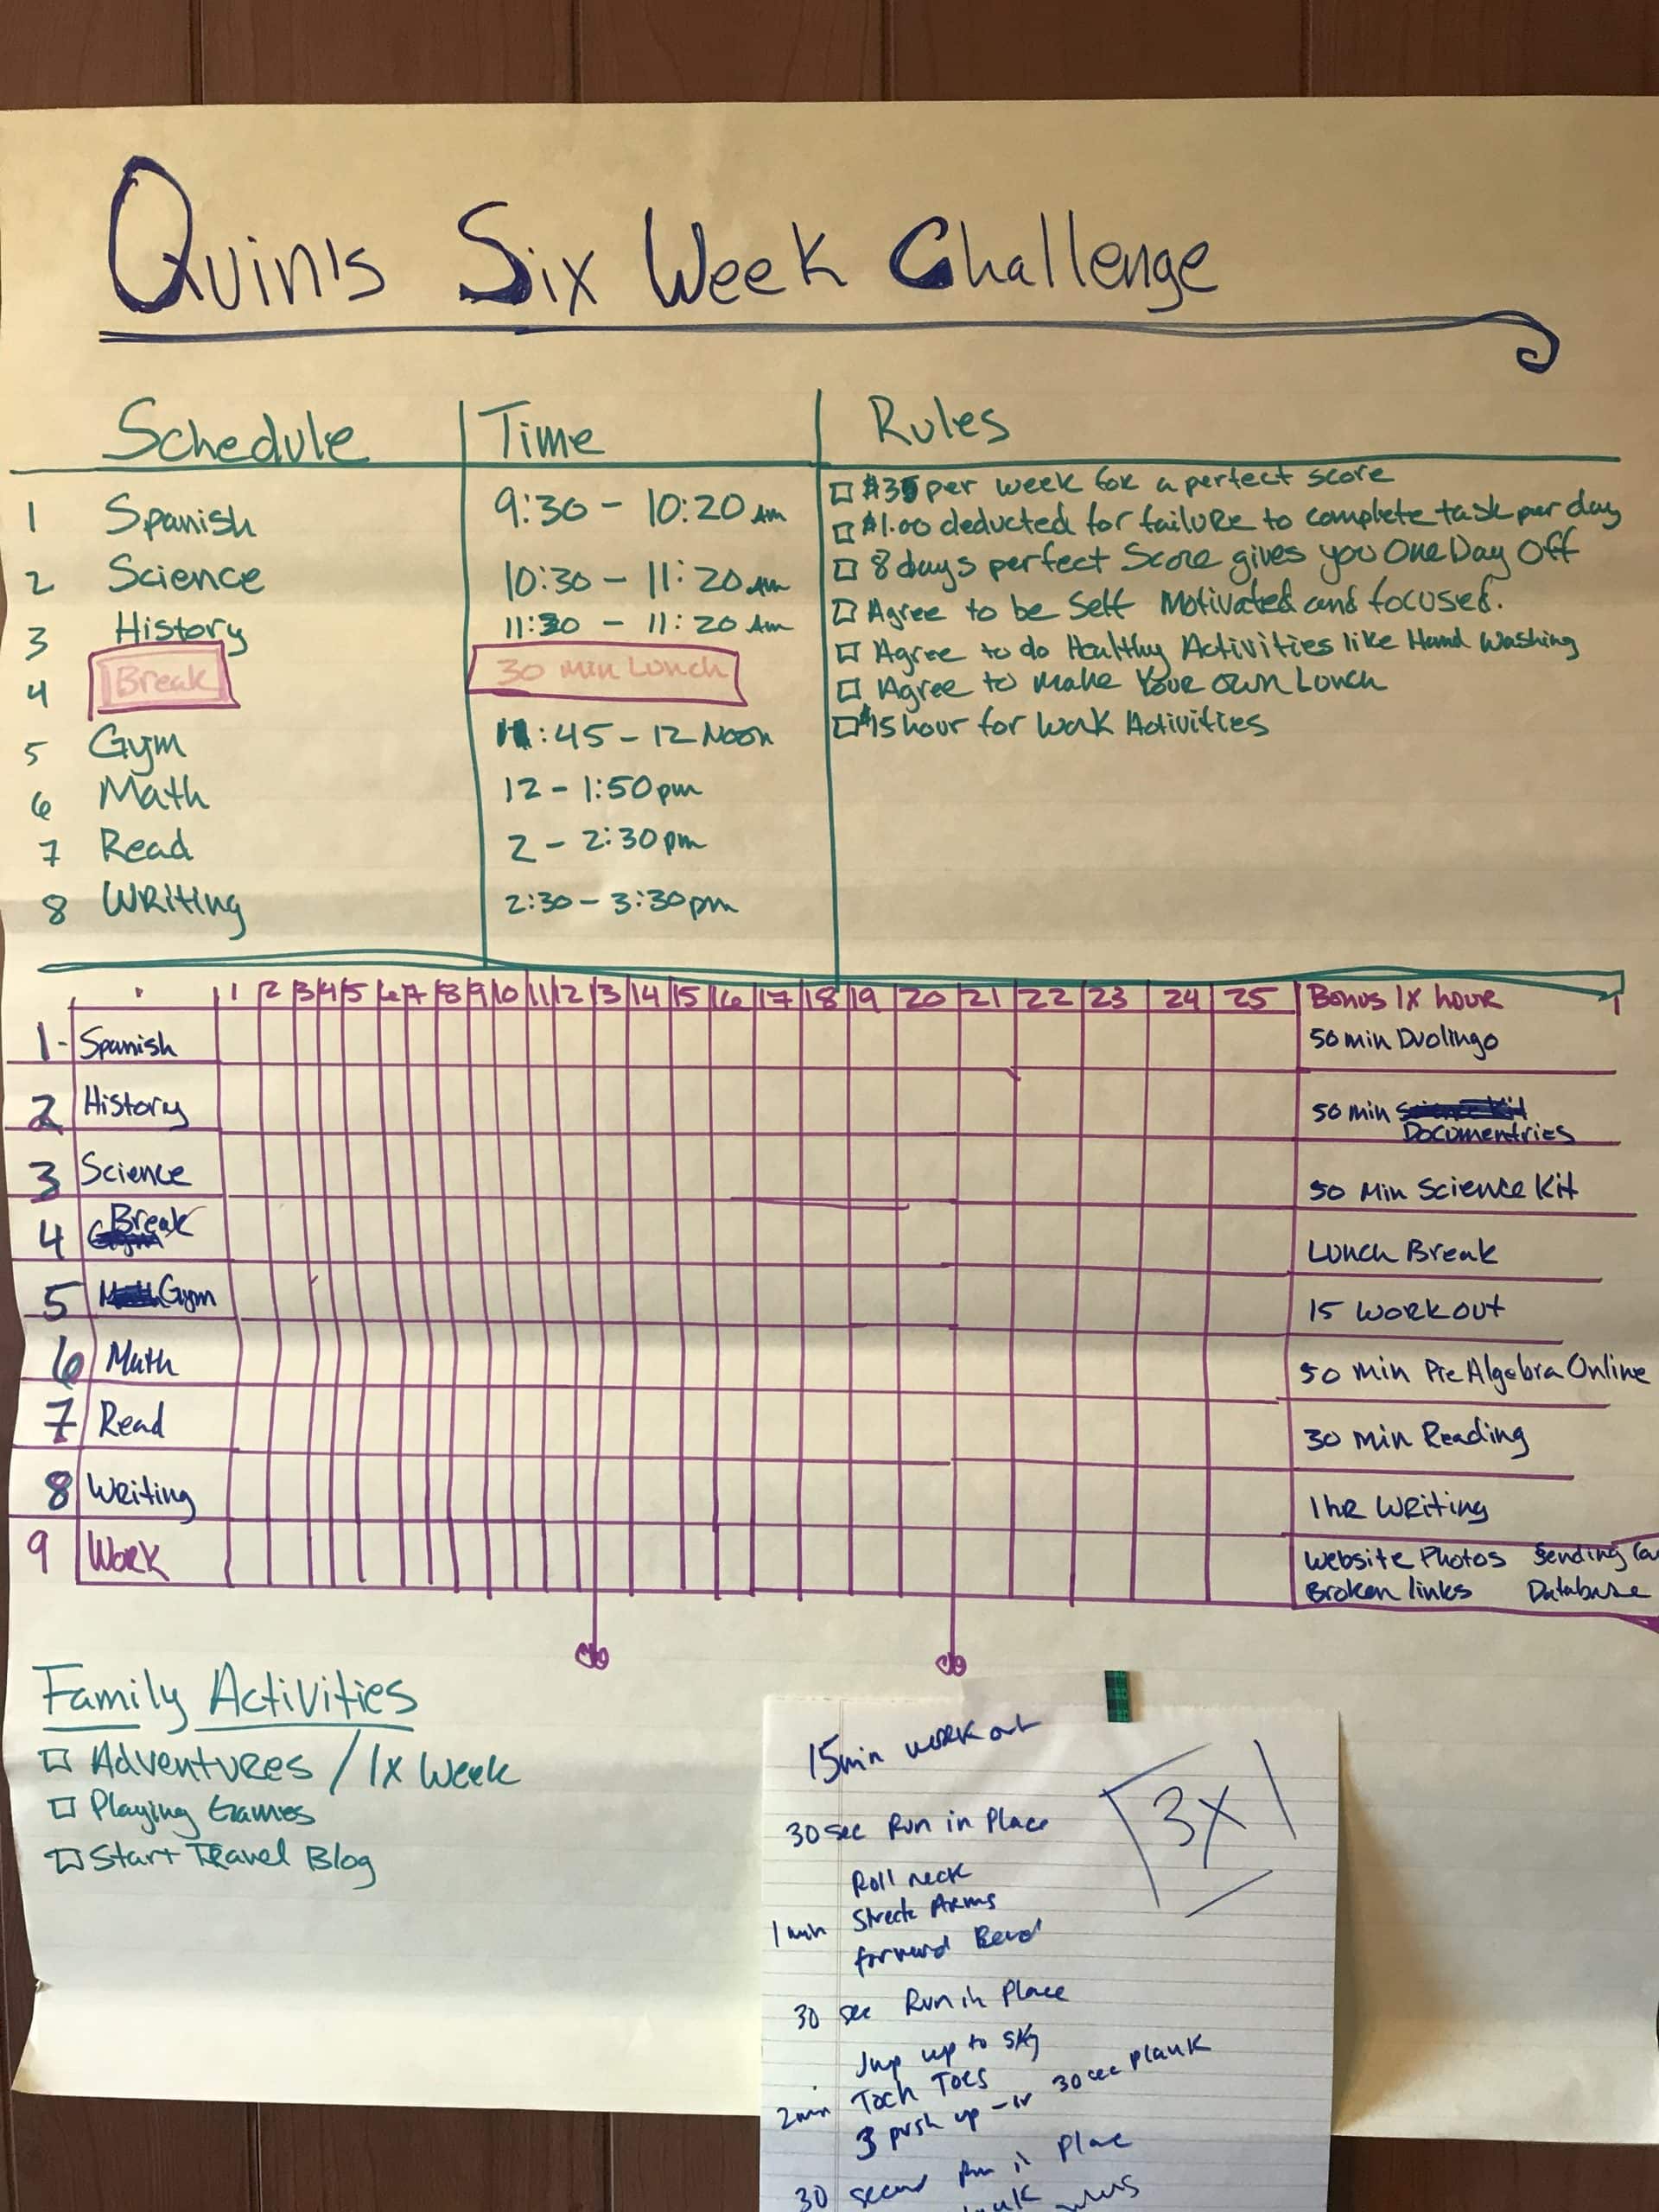 Quin's Six Week Challenge
Schedule Time Rules
1 Spanish 9:30 - 10:20 Am
2 Science 10:30 - 11:20 Am
3 History 11:30 - 11:20 Am
4 Break 30 min Lunch
5 Gym 11:45 - 12 Noon
6 Math 12 - 1:50pm
7 Read 2 - 2:30pm
8 Writing 2:30 - 3:30pm
$35 per week for a perfect score
$1.00 deducted for failure to complete task per day
8 days perfect Score gives you One Day Off
Agree to be Self Motivated and focused.
Agree to do Healthy Activities like Hand Washing
Agree to Make Your own Lunch
$15 hour for Work Activities
1 2 3 4 5 6 7 8 9 10 11 12 13 14 15 16 17 18 19 20 21 22 23 24 25 Bonus 1x hour
1- Spanish 50 min Duolingo
2 History 50 min Science Kit
Documentries
3 Science 50 Min Science Kit
4 Break Lunch Break
5 Math Gym 15 Work out
6 Math 50 min Pre Algebra Online
7 Read 30 min Reading
8 Writing 1hr Writing
9 Work Website Photos Sending
Broken links Database
Family Activities
Adventures / 1x Week
Playing Games
Start Travel Blog
15min work out
3x
30 sec Run in Place
Roll neck
1 min Strech Arms
forward Bend
30 sec Run in Place
Jup up to sky
2min Toch Toes
3 push up - or 30 sec plank
30 second Run in Place